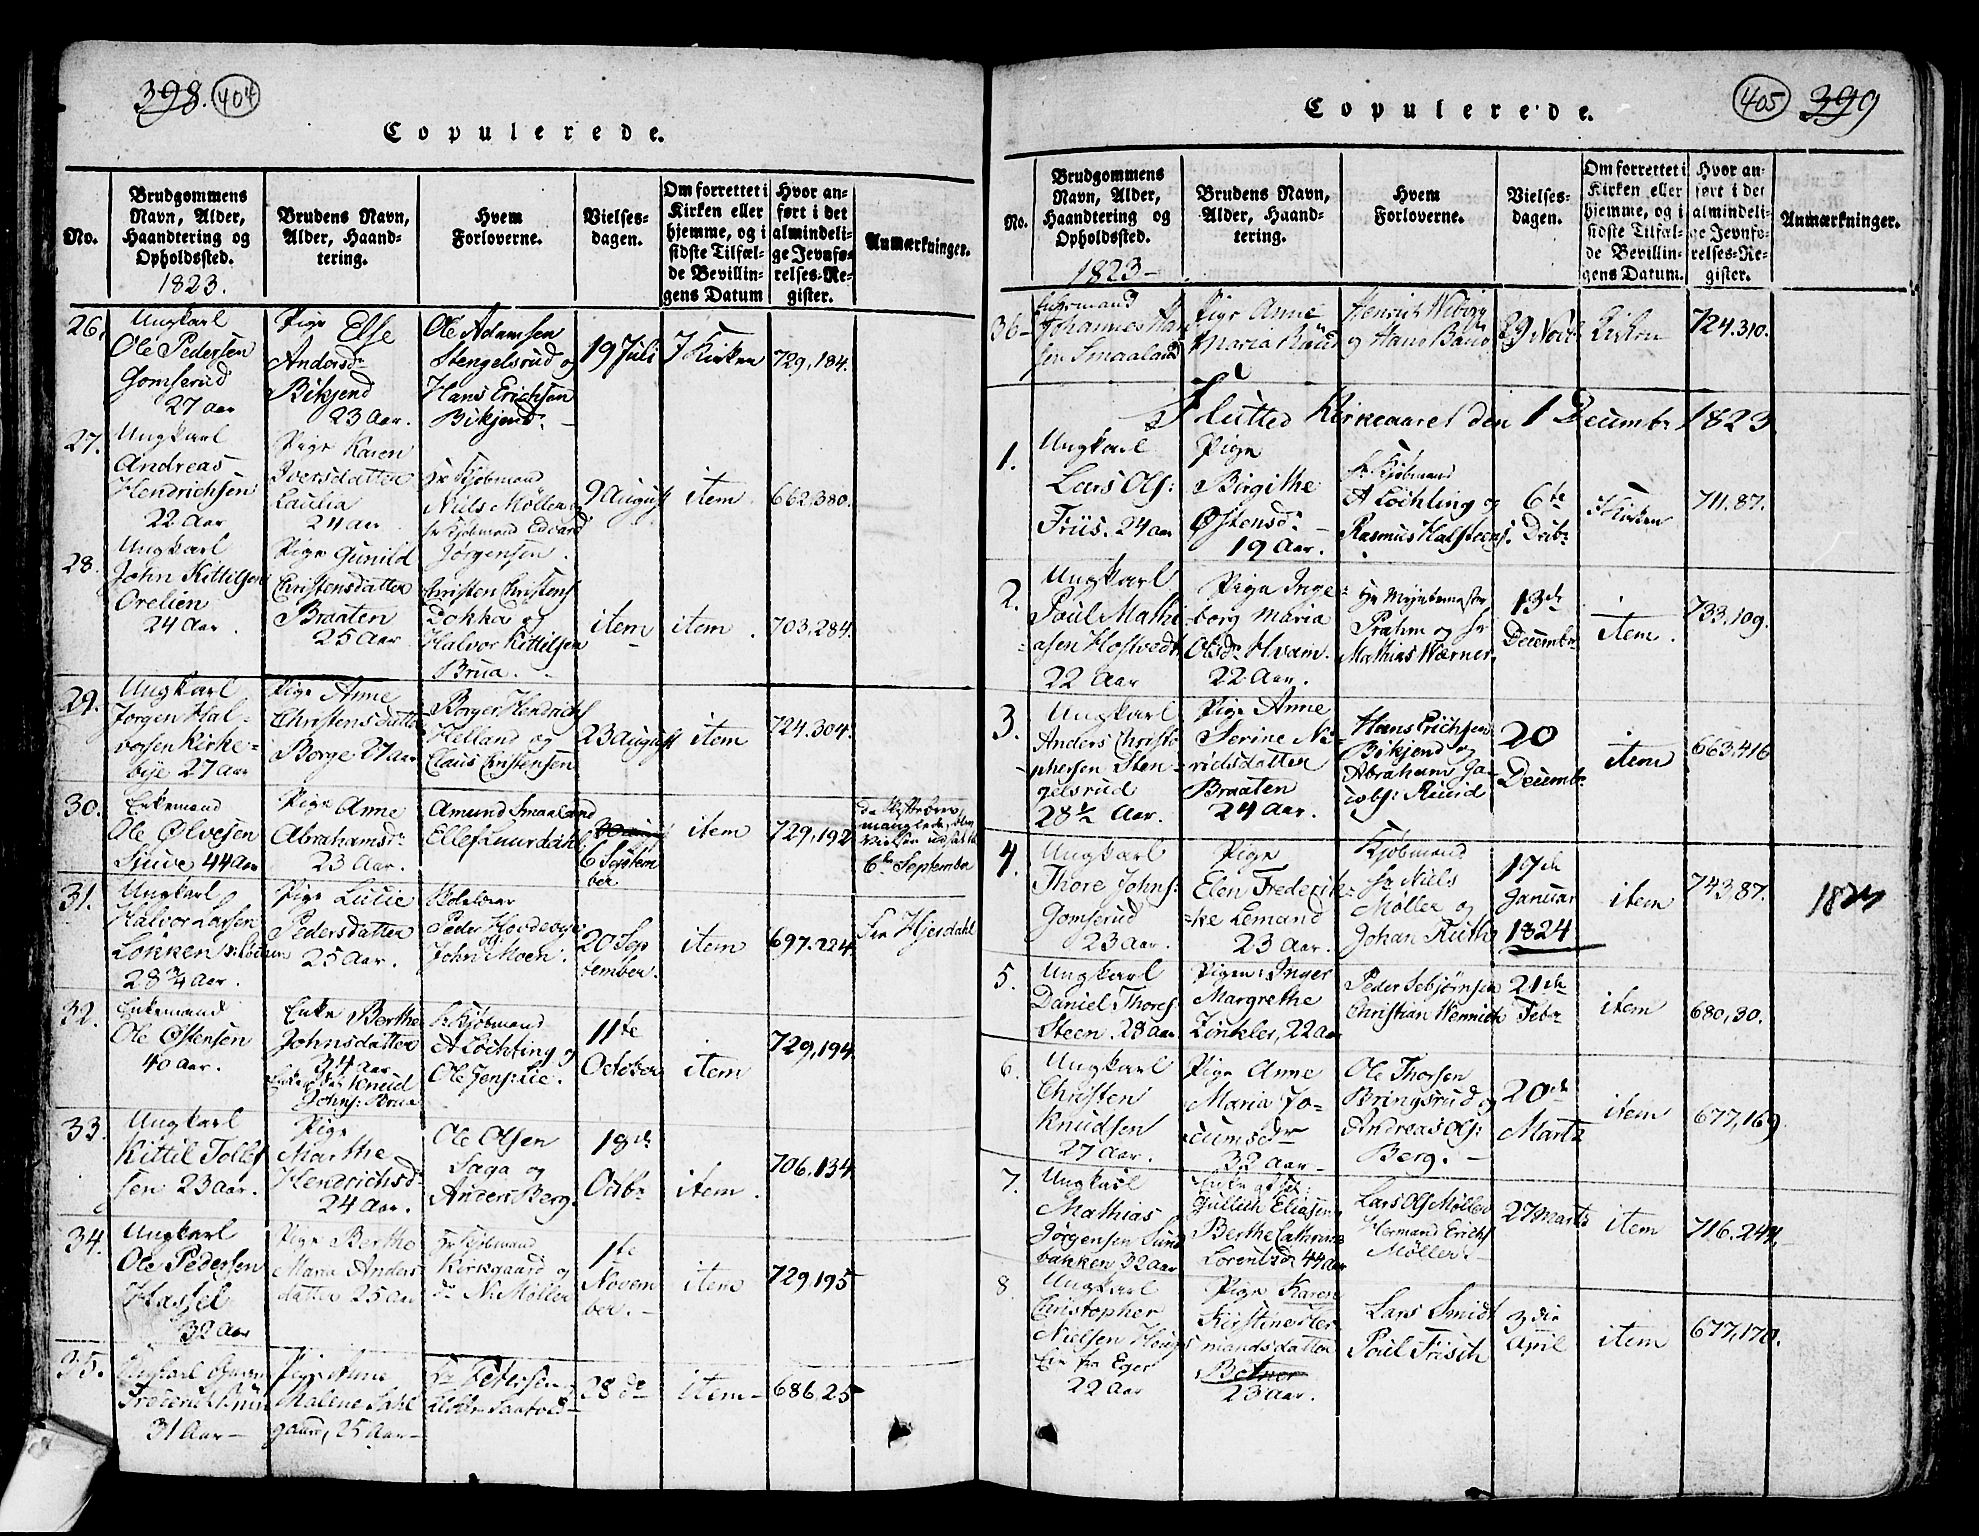 398. 404
Copulerede.
No.
Brudgommens
Navn, Alder,
Haandtering og
Opholdssted.
1823.
Brudens Navn,
Alder, Haand-
tering.
Hvem
Forloverne.
Vielses-
dagen.
Om forrettet i
Kirken eller
hjemme, og i
sidste Tilfæl-
de Bevillin-
gens Datum
Hvor an-
ført i det
almindeli-
ge Jevnfø-
relses-Re-
gister.
Anmærkninger.
26.
Ungkarl
Ole Pedersen
Gomserud
27 aar
Pige Else
Andersdr
Bikjend
23 Aar.
Ole Adamsen
Stengelsrud og
Hans Erichsen
Bikjend
19 Juli
I Kirken
729,184.
27.
Ungkarl
Andreas
Hendrichsen
22 Aar
Pige Karen
Iversdatter
24 aar
Hr Kjøbmand
Niels Møller og
Hr Kjøbmand Edvard
Jørgensen.
9 August
item
662,380.
28.
Ungkarl
John Kittilsen
Orelien
24 Aar
Pige Gunild
Christensdatter
Braaten
25 Aar
Christen Christens
Dokka og
Halvor Kittilsen
Brua.
item
item.
703,284.
29.
Ungkarl
Jørgen Hal-
vorsen Kirke-
bye 27 aar
Pige Anne
Christensdatter
Borge 27 aar
Borger Hendrichs
Helland og
Claus Christensen
23 August
item
724.304.
30.
Enkemand
Ole Ølvesen
44 aar
Pige Anne
Abrahamsdr
23 Aar.
Amund Smaaland
6 Septem
ber
item
729,192
manglede, blev
Vielsen udsat til
6te September
31.
Ungkarl
Halvor Larsen
Løkken
28 3/4 Aar.
Pige Lucie
Pedersdatter
25 Aar.
Peder
og
John Moen.
20 Sep
tember.
item
697.224.
Fra Hjerdahl
32.
Enkemand
Ole Østensen
40 aar.
Enke Berthe
Johnsdatter
34 aar
Enke efter Knud
Johns: Brua
Hr Kjøbmand
A Lochting og
Ole Jens:
11te
October
item
729,194
33.
Ungkarl
Kittil Tollef
sen 23 aar.
Pige
Marthe
Hendrichsd
24 Aar.
Ole Olsen
Saga og
Anders Berg.
18de
Octbr
item.
706.134
34.
Ungkarl
Ole Pedersen
Hassel
32 Aar
Pige Berthe
Maria Anders
datter 25 aar
Hr Kjøbmand
Kirkgaard og
do N: Møller
1te
Novem
ber.
item
729,195
35.
Ungkarl
31 Aar
Pige Anne
Malene Dahl
gaard, 25 Aar
Hr Petersen
28 do
item
686.25
405 399
Copulerede.
No.
Brudgommens
Navn, Alder,
Haandtering og
Opholdssted.
1823
Brudens Navn,
Alder, Haand-
tering.
Hvem
Forloverne.
Vielses-
dagen.
Om forrettet i
Kirken eller
hjemme, og i
sidste Tilfæl-
de Bevillin-
gens Datum.
Hvor an-
ført i det
almindeli-
ge Jevnfø-
relses-Re-
gister.
Anmærkninger.
36
Johannes Han
sen Smaaland
Pige Anne
Maria
Henrich Wiborg
og Hans
29 Novb
Kirken
724.310.
Slutted Kirkeaaret den 1 Decembr 1823
1.
Ungkarl
Lars Ols:
Friis. 24 aar
Pige
Birgithe
Østensdr
19 Aar.
Hr Kjøbmand
A Lochting og
Rasmus Halsteens:
6te
Decbr
I Kirken
711.87.
2.
Ungkarl
Poul Mathi
asen Hostvedt
22 Aar
Pige Inge
borg Maria
Olsdr Hvam.
22 Aar.
Hr Myntemester
Prahm og Hr
Mathias Wærner.
13de
Decembr
item.
733,109.
3.
Ungkarl
Anders Christo
phersen Sten-
gelsrud
28 1/2 Aar.
Pige Anne
Serine Ni-
ridsdatter
Braaten
24 Aar.
Hans Erichsen
Bikjend og
Abraham Ja-
cobs: Ruud
20
Decembr
item
663,416
4.
Ungkarl
Thore Johns:
Gomserud
23 Aar.
Pige
Elen Frederik-
ke Lemand
23 Aar.
Kjøbmand
Hr Niels
Møller og
Johan Ruth
17de
Januar
1824
item
743,87.
1824
5.
Ungkarl
Daniel Thores
Steen. 28 aar
Pigen Inger
Margrethe
Zinkler, 22 aar
Peder Sebjørnsen
Christian Wennich
21de
Febr
item
680,30.
6.
Ungkarl
Christen
Knudsen
27 Aar.
Pige Anne
Maria Jo-
cumsdr
32 aar
Ole Thorsen
Bringsrud og
Andreas Ols:
Berg.
20de
Martz
item
677,169
7.
Ungkarl
Mathias
Jørgensen Sund
bakken 32 aar
Enke efter
Gullich Eliasen
Berthe Cathrine
Lorentsdr 44 aar
Lars Ols Møller
Hermand Erichs
Møller.
27 Martz
item
716.244.
8.
Ungkarl
Christopher
Nielsen Houg
Em fra Eger
22 Aar
Pige Karen
Kirstine Her
mandsdatter
23 aar.
Lars Smidt
Poul Frisch
3die
April
item
677,170.